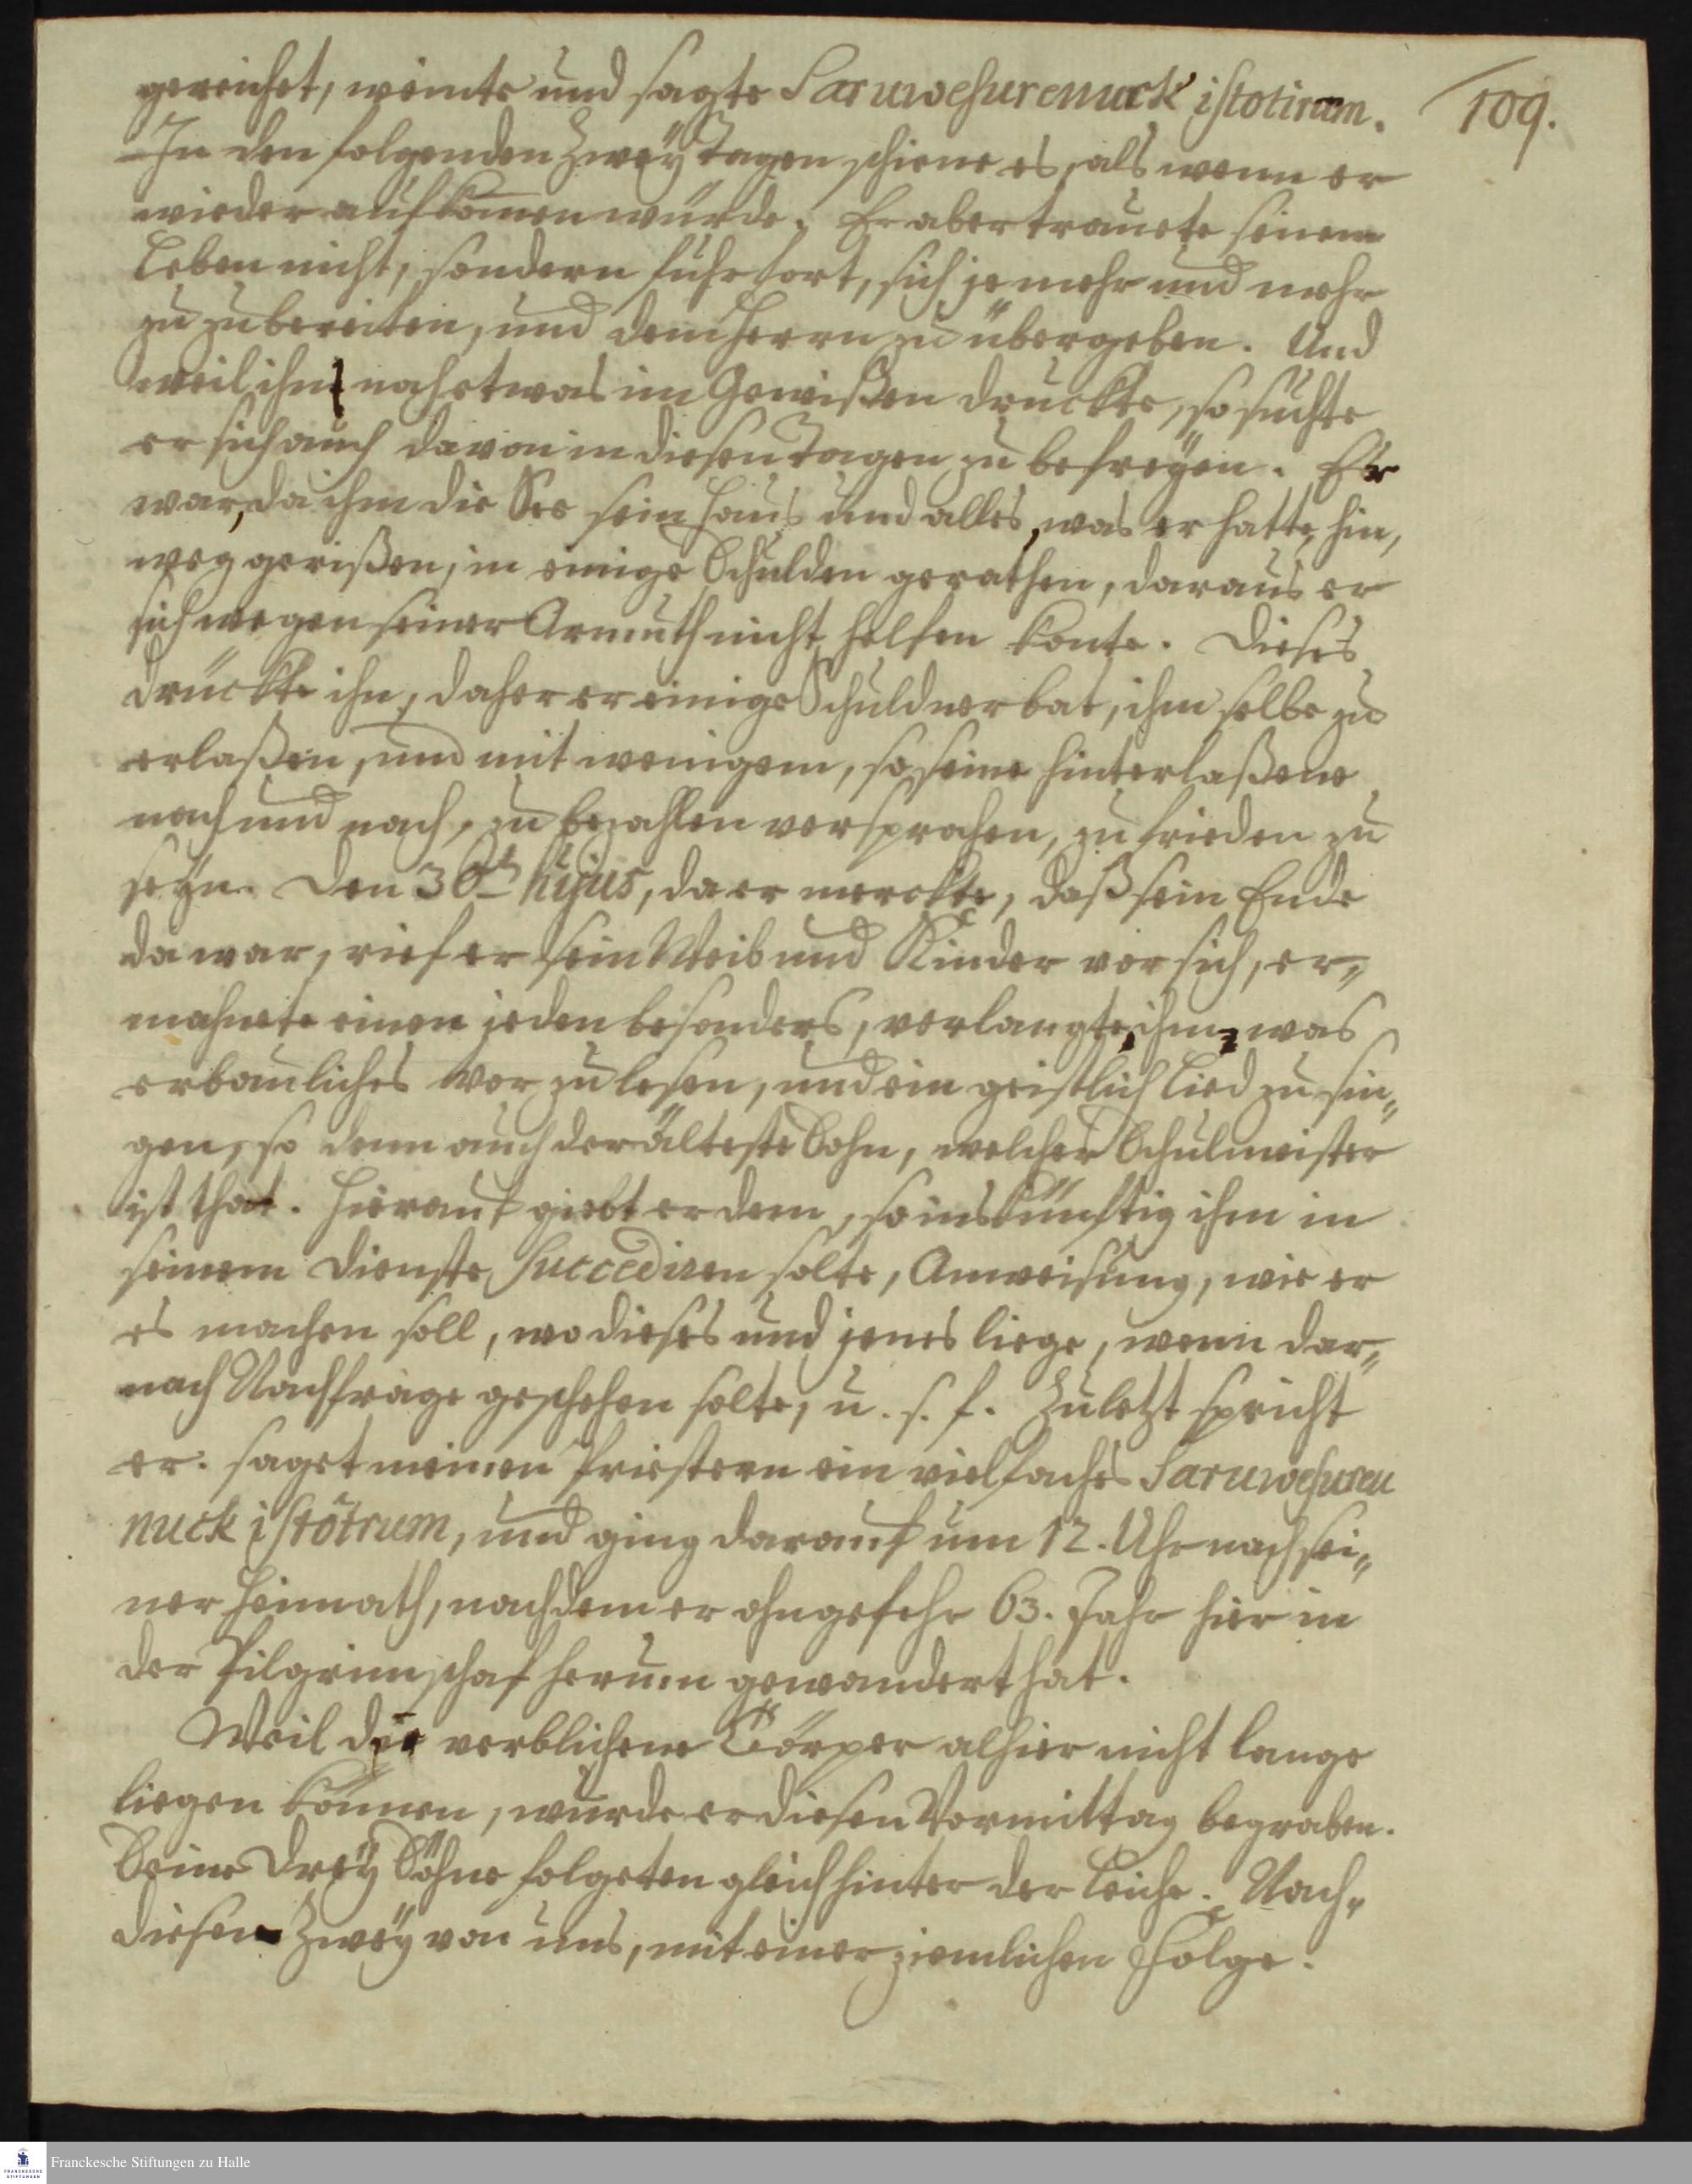 109.
gereichet, weinte und sagte Saruwesurenuck istotiram.
In den folgenden Zweÿ Tagen schiene es, als wenn er
wieder aufkommen würde. Er aber trauete seinem
Leben nicht, sondern fuhr fort, sich je mehr und mehr
zu zubereiten, und dem Herrn zu übergeben. Und
weil ihn noch etwas im Gewißen druckte, so suchte
er sich auch davon in diesen Tagen zu befreÿen. Er
war, da ihm die See sein Haus und alles, was er hatte, hin,
weg gerißen, in einige Schulden gerathen, daraus er
sich wegen seiner Armuth nicht helfen konte. Dieses
drückte ihn, daher er einige Schuldner bat, ihm selbe zu
erlaßen, und mit wenigem, so seine hinterlaßene
nach und nach, zu bezahlen versprachen, zu frieden zu
seÿn. Den 30t hujus, da er merckte, daß sein Ende
da war, rief er sein Weib und Kinder vor sich, er„
mahnete einen jeden besonders, verlangte, ihm was
erbauliches vor zu lesen, und ein geistlich Lied zu sin„
gen, so denn auch der älteste Sohn, welcher Schulmeister
ist that. Hierauf giebt er dem, so ins künftig ihm in
seinem Dienste Succediren solte, Anweisung, wie er
es machen soll, wo dieses und jenes liege, wenn dar„
nach Nachfrage geschehen solte, u. s. f. Zuletzt spricht
er. saget meinen Priestern ein vielfaches Saruwesuren
nuck istôtrum, und ging darauf um 12. Uhr nach sei„
ner Heimath, nachdem er ohngefehr 63. Jahr hier in
der Pilgrimschaf herum gewandert hat.
Weil die verblichene Cörper alhier nicht lange
liegen können, wurde er diesen Vormittag begraben.
Seine dreÿ Söhne folgeten gleich hinter der Leiche. Nach„
diesen Zweÿ von uns, mit einer ziemlichen Folge.
Franckesche Stiftungen zu Halle
FRANCKESCHE
STIFTUNGEN